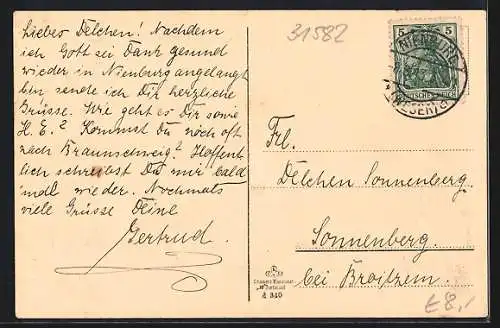 Liebes Delchen! Nachdem
ich Gott sei Dank gesund
wieder in Nienburg angelangt
bin sende ich Dir herzliche
Grüsse. Wie geht es Dir sowie
H. E.? Kommst Du noch oft
nach Braunschweig? Hoffent-
lich schreibst Du mir bald
mal wieder. Nochmals
viele Grüsse Deine
Gertrud.
31582
5 5
NIENBURG
(WESER)
DEUTSCHES REICH
Frl.
Delchen Sonnenberg.
Sonnenberg.
bei Broitzem.
d 340
£8,-